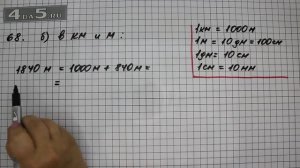 4a5.ru
68. б) в км и м:
1840 м = 1000 м + 840 м =
=
1км = 1000м
1м = 10 дм = 100см
1дм = 10 см
1см = 10 мм